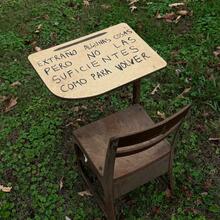 EXTRAÑO ALGUNAS COSAS
PERO NO LAS
SUFICIENTES
COMO PARA VOLVER